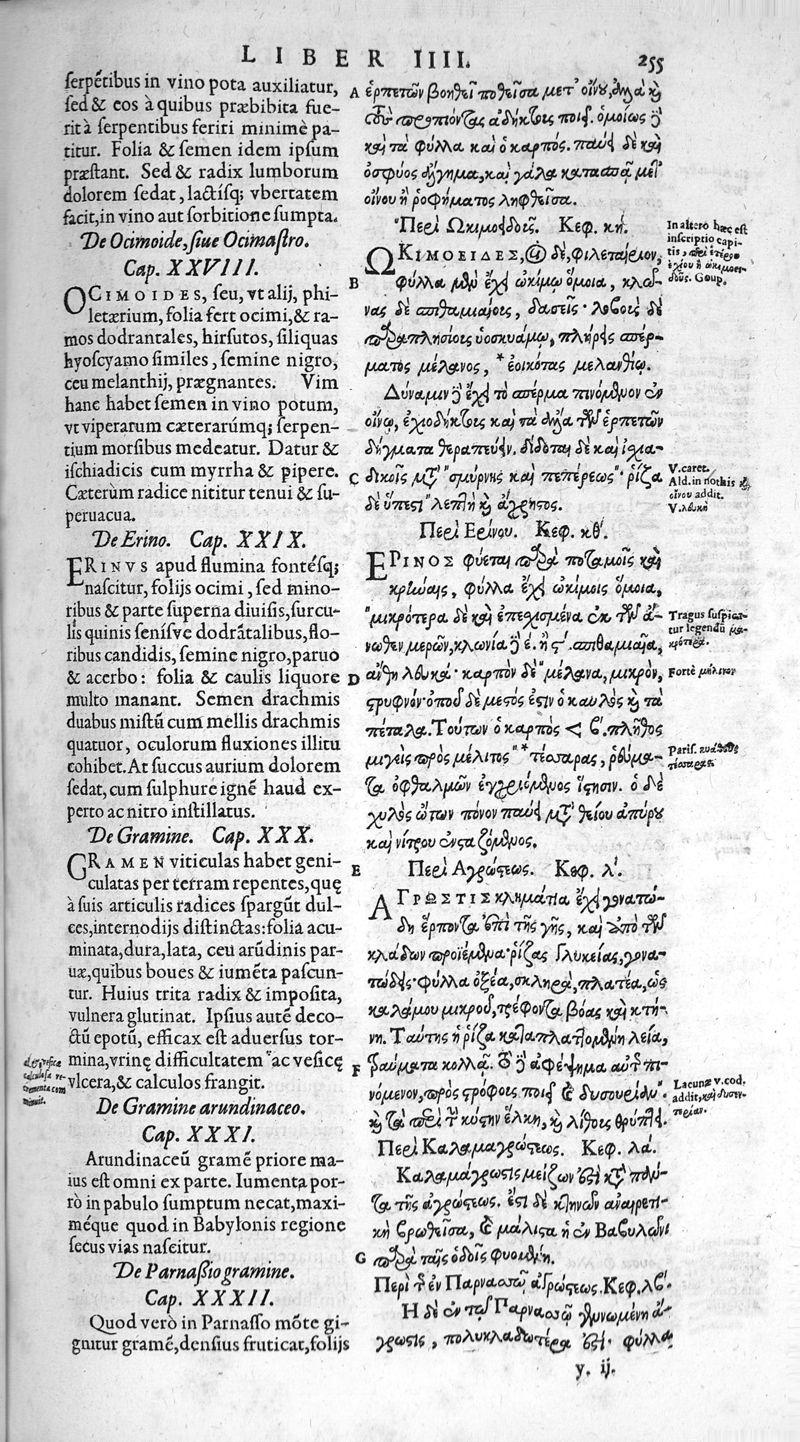 LIBER IIII.
255
serpētibus in vino pota auxiliatur,
sed & eos à quibus præbibita fue-
rit à serpentibus feriri minimè pa-
titur. Folia & semen idem ipsum
præstant. Sed & radix lumborum
dolorem sedat, lactisq; vbertatem
facit, in vino aut sorbitione sumpta.
De Ocimoide, siue Ocimastro.
Cap. XXVIII.
OCIMOIDES, seu, vt alij, phi-
letærium, folia fert ocimi, & ra-
mos dodrantales, hirsutos, siliquas
hyoscyamo similes, semine nigro,
ceu melanthij, prægnantes. Vim
hanc habet semen in vino potum,
vt viperarum cæterarúmq; serpen-
tium morsibus medeatur. Datur &
ischiadicis cum myrrha & pipere.
Cæterùm radice nititur tenui & su-
peruacua.
De Erino. Cap. XXIX.
ERINVS apud flumina fontésq;
nascitur, folijs ocimi, sed mino-
ribus & parte superna diuisis, surcu-
lis quinis senísve dodrātalibus, flo-
ribus candidis, semine nigro, paruo
& acerbo: folia & caulis liquore
multo manant. Semen drachmis
duabus mistū cum mellis drachmis
quatuor, oculorum fluxiones illitu
cohibet. At succus aurium dolorem
sedat, cum sulphure igně haud ex-
perto ac nitro instillatus.
De Gramine. Cap. XXX.
GRAMEN viticulas habet geni-
culatas per terram repentes, quę
à suis articulis radices spargūt dul-
ces, internodijs distinctas: folia acu-
minata, dura, lata, ceu arūdinis par-
uæ, quibus boues & iumēta pascun-
tur. Huius trita radix & imposita,
vulnera glutinat. Ipsius autē deco-
ctū epotū, efficax est aduersus tor-
mina, vrinę difficultatem ac vesicę
vlcera, & calculos frangit.
De Gramine arundinaceo.
Cap. XXXI.
Arundinaceū gramē priore ma-
ius est omni ex parte. Iumenta por-
rò in pabulo sumptum necat, maxi-
méque quod in Babylonis regione
secus vias nascitur.
De Parnassio gramine.
Cap. XXXII.
Quod verò in Parnasso mōte gi-
gnitur gramē, densius fruticat, folijs
A ἑρπετῶν βοηθεῖ ποθεῖσα μετ' οἴνου, ἀλλὰ καὶ
τοὺς προπιόντας ἀδήκτους ποιεῖ. ὁμοίως δὲ
καὶ τὰ φύλλα καὶ ὁ καρπός. παύει δὲ καὶ
ὀσφύος ἄλγημα, καὶ γάλα κατασπᾷ μετ'
οἴνου ἢ ῥοφήματος ληφθεῖσα.
Περὶ Ὠκιμοειδοῦς. Κεφ. κή.
ΩΚΙΜΟΕΙΔΕΣ, οἱ δὲ, φιλεταίριον,
B φύλλα μὲν ἔχει ὠκίμῳ ὅμοια, κλῶ-
νας δὲ σπιθαμιαίους, δασεῖς· λοβοὺς δὲ
παραπλησίους ὑοσκυάμῳ, πλήρεις σπέρ-
ματος μέλανος, * ἐοικότας μελανθίῳ.
Δύναμιν δὲ ἔχει τὸ σπέρμα πινόμενον ἐν
οἴνῳ, ἐχιοδήκτους καὶ τὰ ἄλλα τῶν ἑρπετῶν
δήγματα θεραπεύειν. δίδοται δὲ καὶ ἰσχια-
C δικοῖς μετὰ σμύρνης καὶ πεπέρεως· ῥίζα
δὲ ὕπεστι λεπτὴ καὶ ἄχρηστος.
Περὶ Ερίνου. Κεφ. κθ'.
ΕΡΙΝΟΣ φύεται παρὰ ποταμοῖς καὶ
κρήναις, φύλλα ἔχει ὠκίμοις ὅμοια,
μικρότερα δὲ καὶ ἐπεσχισμένα ἐκ τῶν ἄ-
νωθεν μερῶν, κλωνία δὲ ε. ἢ ϛ'. σπιθαμιαῖα,
D ἄνθη λευκά· καρπὸν δὲ μέλανα, μικρὸν,
στρυφνόν· ὀποῦ δὲ μεστός ἐστιν ὁ καυλὸς καὶ τὰ
πέταλα. Τούτων ὁ καρπὸς < β'. πλῆθος
μιγεὶς πρὸς μέλιτος * τέσσαρας, ῥεύμα-
τα ὀφθαλμῶν ἐγχριόμενος ἵστησιν. ὁ δὲ
χυλὸς ὤτων πόνον παύει μετὰ θείου ἀπύρου
καὶ νίτρου ἐνσταζόμενος.
E Περὶ Αγρώστεως. Κεφ. λ'.
ΑΓΡΩΣΤΙΣ κλημάτια ἔχει γονατώ-
δη ἕρποντα ἐπὶ τῆς γῆς, καὶ ἀπὸ τῶν
κλάδων προϊέμενα· ῥίζας γλυκείας, γονα-
τώδεις· φύλλα ὀξέα, σκληρὰ, πλατέα, ὡς
καλάμου μικροῦ, τρέφοντα βόας καὶ κτή-
νη. Ταύτης ἡ ῥίζα καταπλασσομένη λεία,
F τραύματα κολλᾷ. τὸ δὲ ἀφέψημα αὐτῆς πι-
νόμενον, πρὸς στρόφους ποιεῖ καὶ δυσουρίαν.
καὶ τὰ περὶ τὴν κύστην ἕλκη, καὶ λίθους θρύπτει.
Περὶ Καλαμαγρώστεως. Κεφ. λά.
Καλαμάγρωστις μείζων ἐστὶ κατὰ πάν-
τα τῆς ἀγρώστεως. ἔστι δὲ κτηνῶν ἀναιρετι-
κὴ βρωθεῖσα, καὶ μάλιστα ἡ ἐν Βαβυλῶνι
G παρὰ ταῖς ὁδοῖς φυομένη.
Περὶ τῆς ἐν Παρνασσῷ ἀγρώστεως. Κεφ. λβ'.
Η δὲ ἐν τῷ Παρνασσῷ γεννωμένη ἄ-
γρωστις, πολυκλαδωτέρα ἐστί· φύλλα
y. ij.
In altero hæc est
inscriptio capi-
tis, περὶ ἑτέρου
ἐχίου ἢ ὠκιμοει-
δοῦς. Goup.
V. caret.
Ald. in nothis
οἴνου addit.
V. λευκὴ
Tragus suspica-
tur legendū μα-
κρότερα.
Fortè μήλινον
Paris.
τέσσαρσι
Lacunæ v. cod.
addit, καὶ δυσεν-
τερίαν.